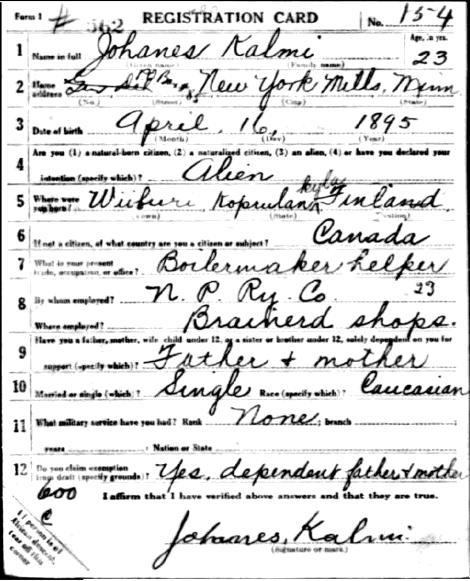 Form 1 # 562 REGISTRATION CARD No. 154
1 Name in full Johanes Kalmi Age, in yrs. 23
(Given name) (Family name)
2 Home address Box New York Mills, Minn
(No.) (Street) (City) (State)
3 Date of birth April 16, 1895
(Month) (Day) (Year)
Are you (1) a natural-born citizen, (2) a naturalized citizen, (3) an alien, (4) or have you declared your
4 intention (specify which)? Alien
kyla
5 Where were you born? Wiiburi Kopiulan Finland
(Town) (State) (Nation)
6 If not a citizen, of what country are you a citizen or subject? Canada
7 What is your present trade, occupation, or office? Boilermaker helper
8 By whom employed? N. P. Ry. Co. 23
Where employed? Brainerd shops.
Have you a father, mother, wife, child under 12, or a sister or brother under 12, solely dependent on you for
9 support (specify which)? Father + mother
10 Married or single (which)? Single Race (specify which)? Caucasian
11 What military service have you had? Rank None; branch
years Nation or State
12 Do you claim exemption from draft (specify grounds)? Yes, dependent father + mother
600 I affirm that I have verified above answers and that they are true.
C
Johanes, Kalmi
(Signature or mark)
If person is of African descent, tear off this corner